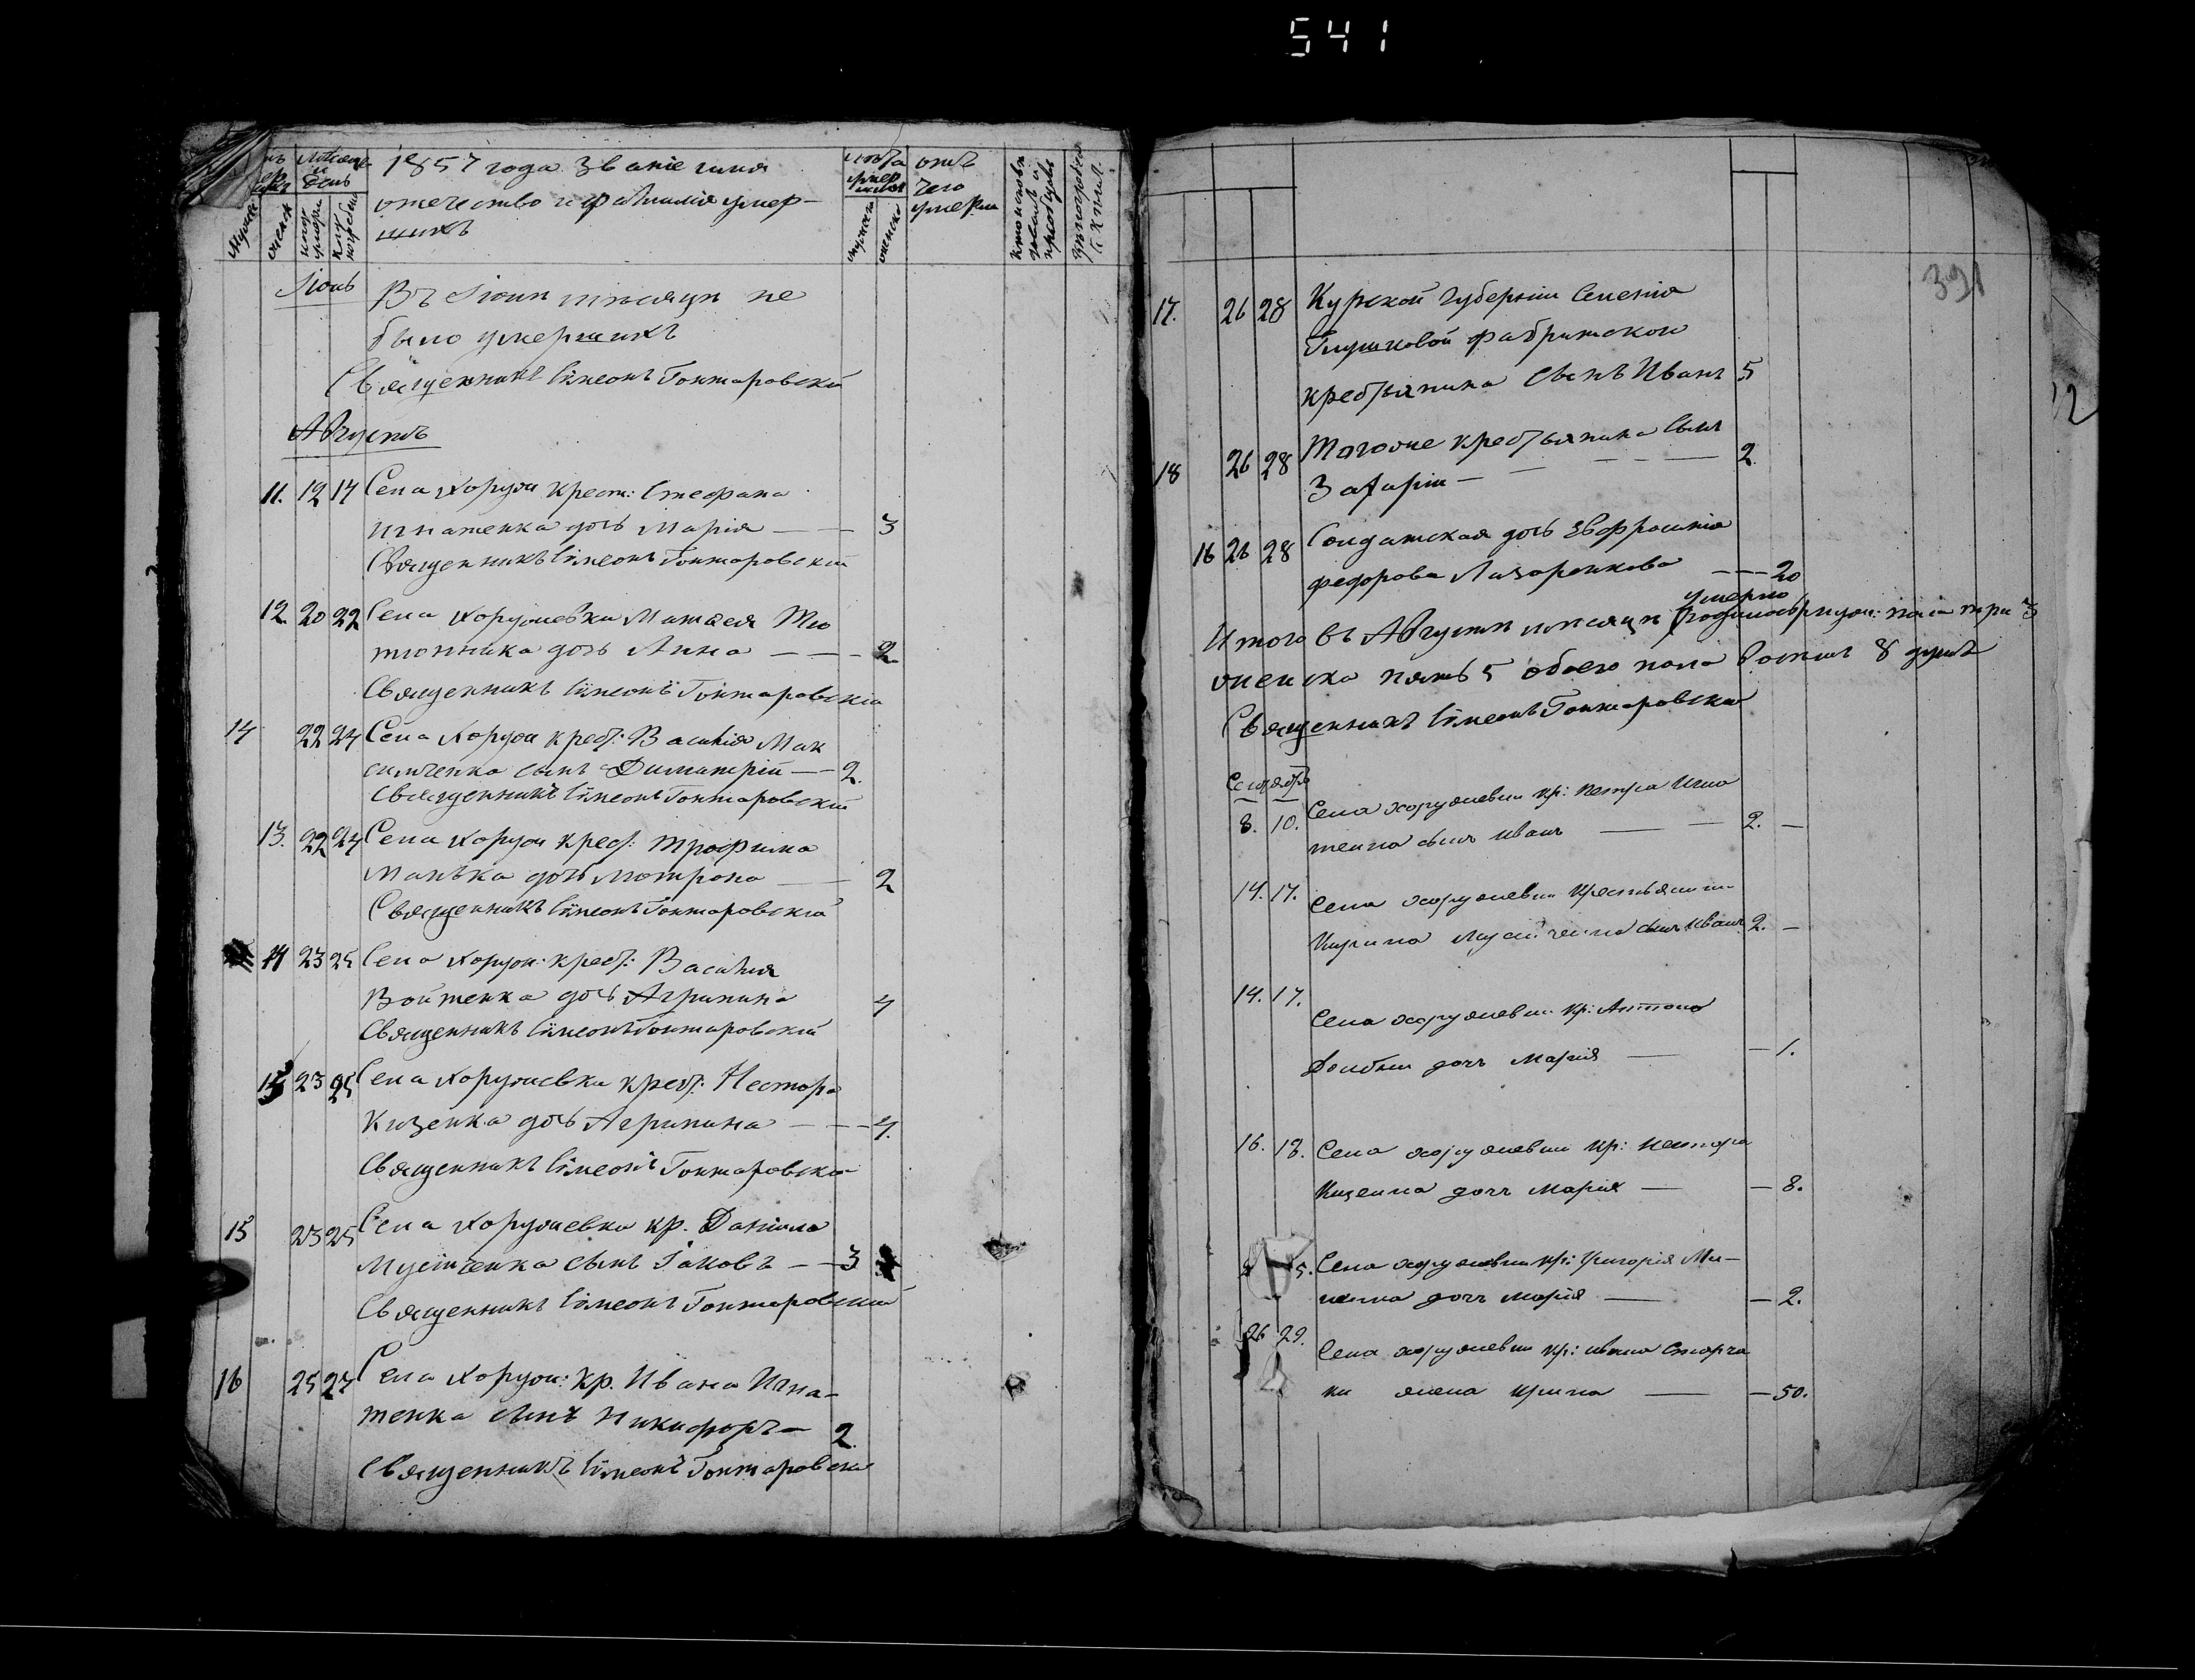 541
1857 года Званіе имя
отечество и фамилія умер-
шихъ
мѣсяцъ и день
лѣта умершихъ
отъ чего умерли
Іюль
Въ Іюли мѣсяцѣ не
было умершихъ
Священникъ Сѵмеонъ Гонтаровскій
Августъ
11. 12 14 Села Коруж крест: Стефана
Игнатенка дочь Марія — — 3
Священникъ Сѵмеонъ Гонтаровскій
12. 20 22 Села Коружевки Матвея Тю
тюнника дочь Анна — — — 2.
Священникъ Сѵмеонъ Гонтаровскій
14 22 24 Села Коруж крест: Василія Мак
симченка сынъ Димитрій — — 2.
Священникъ Сѵмеонъ Гонтаровскій
13. 22 24 Села Коруж крест: Трофима
Манька дочь Мотрона — — 2
Священникъ Сѵмеонъ Гонтаровскій
14 23 25 Села Коруж: крест: Василія
Войтенка дочь Агрипина 4
Священникъ Сѵмеонъ Гонтаровскій
15 23 25 Села Коружевки крест: Нестора
Кизенка дочь Агрипина — — — 4.
Священникъ Сѵмеонъ Гонтаровскій
15 23 25 Села Коружевки кр. Даніила
Мусіиченка сынъ Іаковъ — — 3
Священникъ Сѵмеонъ Гонтаровскій
16 25 27 Села Коруж: кр. Ивана Игна-
тенка сынъ Никифоръ — 2.
Священникъ Сѵмеонъ Гонтаровскій
391
17. 26 28 Курской Губерніи Селенія
Глушковой фабритской
крестьянина сынъ Иванъ 5
18 26 28 Тогоже крестьянина сынъ
Захарій — — — — — 2.
16 26 28 Солдатская дочь Евфросинія
Федорова Лазаренкова — — — 20
умерло
Итого въ Августѣ мѣсяцѣ муж: пола три 3
женска пять 5 обоего пола восемь 8 душъ
Священникъ Сѵмеонъ Гонтаровскій
Сентябрь
8. 10. Села хоружевки кр: Петра Игна
тенка сынъ Иванъ — — 2. —
14. 17. Села хоружевки Крестьянина
Кирила Мусіиченка сынъ Иванъ 2. —
14. 17. Села хоружевки кр: Антона
Довбни дочь Марія — — 1.
16. 18. Села хоружевки кр: Нестора
Кизенка дочь Марія — — 8.
5. Села хоружевки кр: Григорія Ми-
ненка дочь Марія — — 2.
26 29. Села хоружевки кр: Ивана Старча
ки жена Ирина — — 50.
12